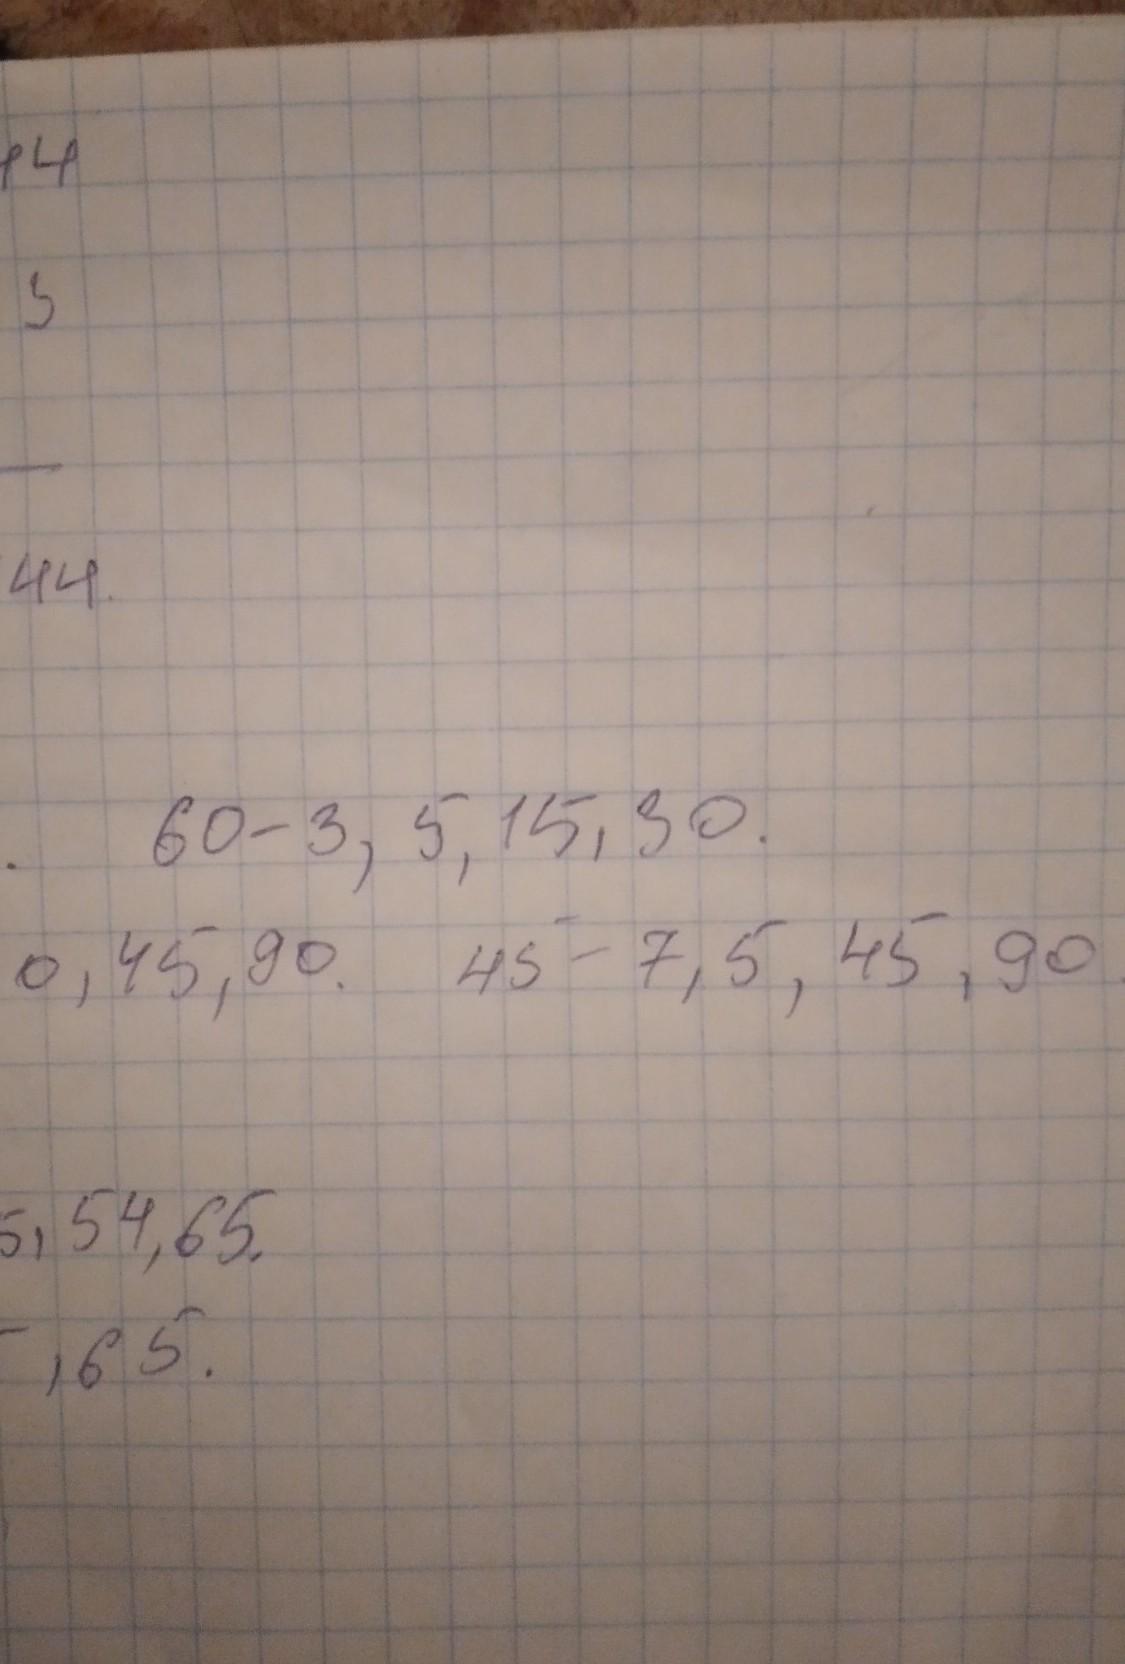 44
3
44.
60-3, 5, 15, 30.
0, 45, 90. 45-7, 5, 45, 90.
5, 54, 65.
, 65.